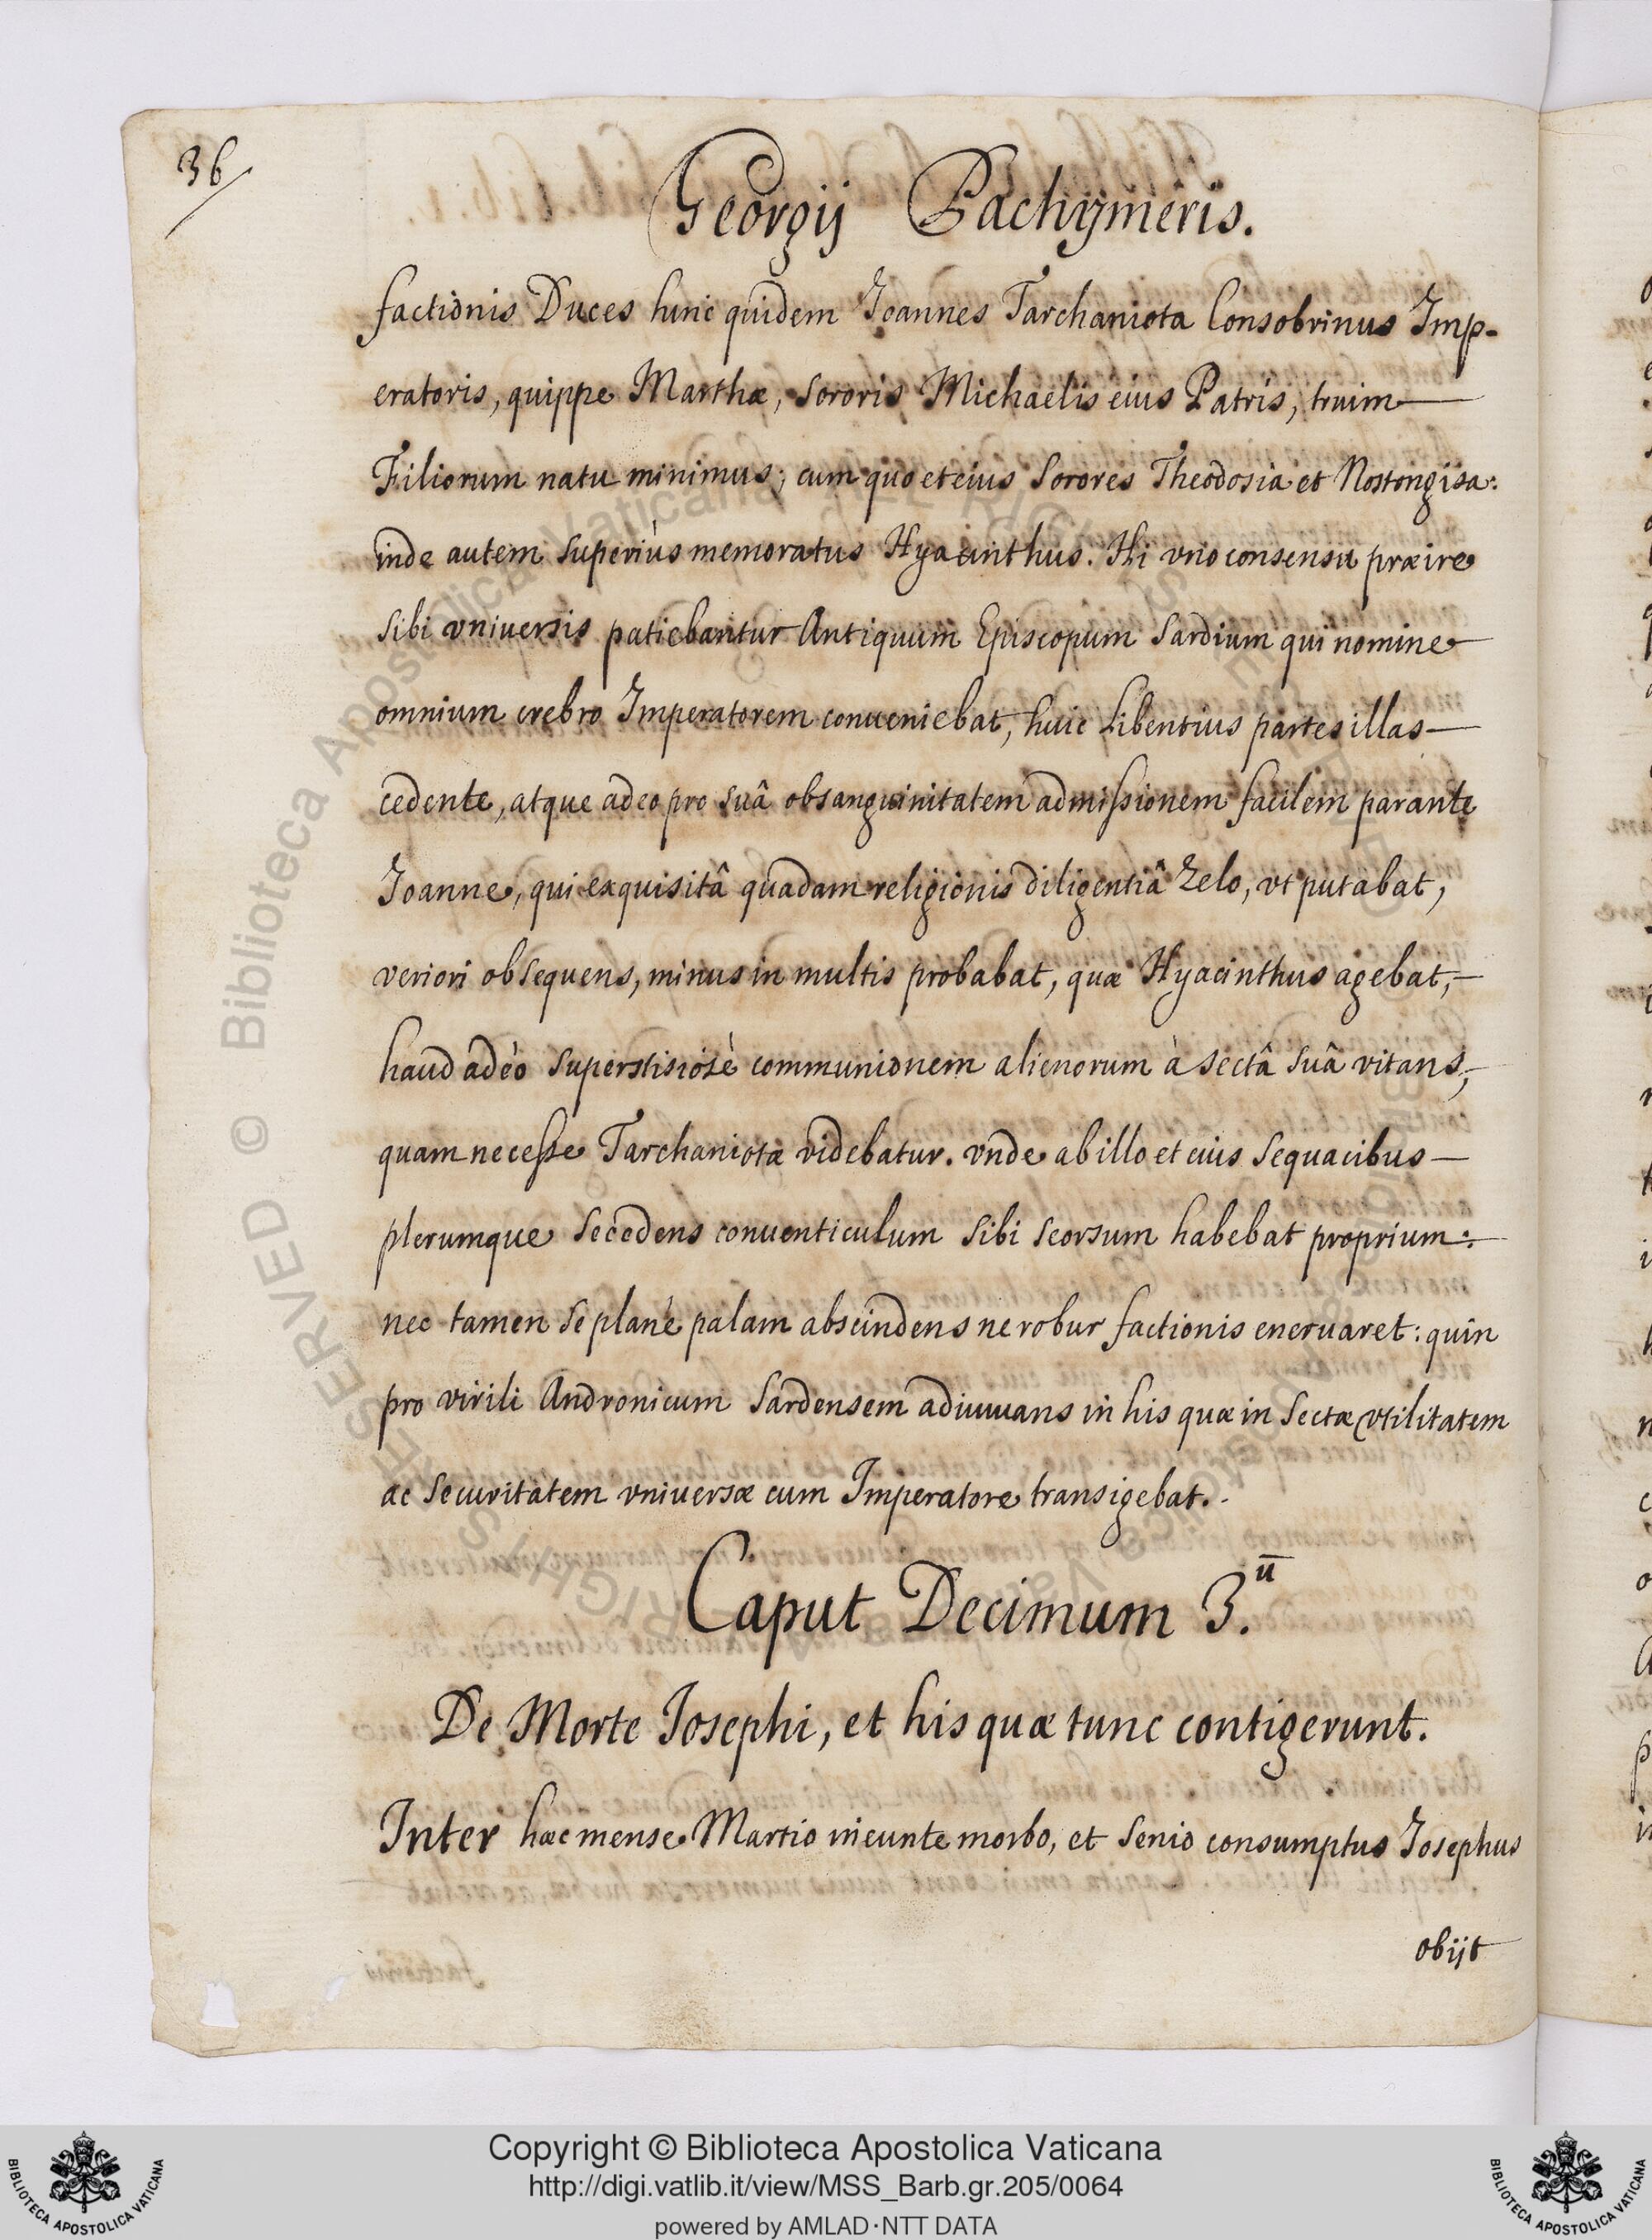 36
Georgij Pachijmeris.
factionis Duces hinc quidem Joannes Tarchaniota Consobrinus Imp-
eratoris, quippe Marthæ, sororis Michaelis eius Patris, trium
Filiorum natu minimus; cum quo et eius Sorores Theodosia et Nostongisa:
inde autem superiùs memoratus Hyacinthus. Hi vno consensu præire
sibi vniuersis patiebantur Antiquum Episcopum Sardium qui nomine
omnium crebro Imperatorem conueniebat, huic Libentius partes illas
cedente, atque adeo pro suâ obsanguinitatem admissionem facilem parante
Joanne, qui exquisitâ quadam religionis diligentiâ Zelo, vt putabat,
veriori obsequens, minus in multis probabat, quæ Hyacinthus agebat,
haud adèo superstisiosè communionem alienorum à sectâ suâ vitans,
quam necesse Tarchaniotæ videbatur. vnde ab illo et eius sequacibus
plerumque secedens conuenticulum sibi seorsum habebat proprium:
nec tamen se planè palam abscindens ne robur factionis eneruaret: quin
pro virili Andronicum Sardensem adiuuans in his quæ in Sectæ vtilitatem
ac Securitatem vniuersæ cum Imperatore transigebat.
Caput Decimum 3.ū
De Morte Josephi, et his quæ tunc contigerunt.
Inter hæc mense Martio ineunte morbo, et senio consumptus Josephus
obijt
RESERVED © Biblioteca Apostolica Vaticana
Copyright © Biblioteca Apostolica Vaticana
http://digi.vatlib.it/view/MSS_Barb.gr.205/0064
powered by AMLAD·NTT DATA
BIBLIOTECA APOSTOLICA VATICANA
BIBLIOTECA APOSTOLICA VATICANA